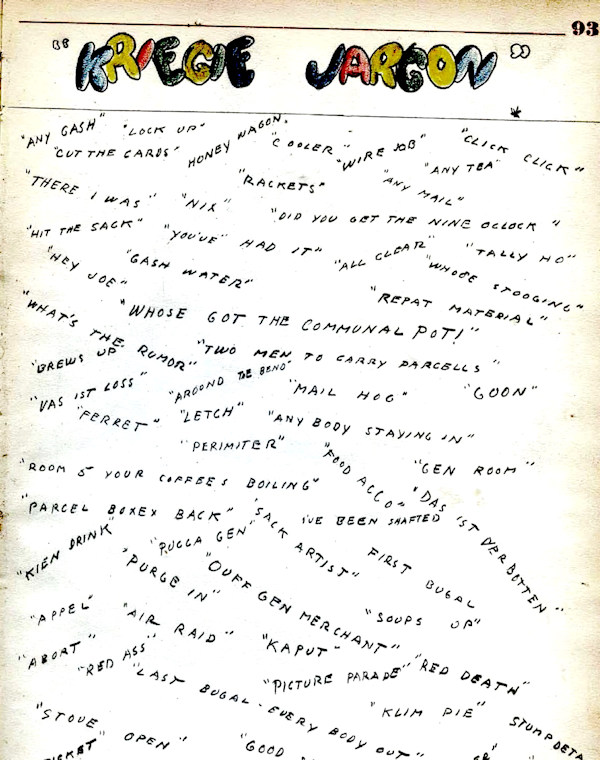 93
"KRIEGIE JARGON"
"ANY GASH" "LOCK UP" HONEY WAGON. "COOLER" "WIRE JOB" "CLICK CLICK"
"CUT THE CARDS" "ANY TEA"
"RACKETS" "ANY MAIL"
"THERE I WAS" "NIX" "DID YOU GET THE NINE OCLOCK"
"HIT THE SACK" "YOU'VE" HAD IT" "ALL CLEAR" "TALLY HO"
"HEY JOE" "GASH WATER" "WHOSE STOOGING"
"REPAT MATERIAL"
"WHOSE GOT THE COMMUNAL POT!"
"WHAT'S THE RUMOR" "TWO MEN TO CARRY PARCELLS"
"BREWS UP" "AROOND THE BEND" "MAIL HOG" "GOON"
"VAS IST LOSS"
"FERRET" "LETCH" "ANY BODY STAYING IN"
"PERIMITER"
"ROOM 5 YOUR COFFEES BOILING" "FOOD ACCO" "GEN ROOM"
"PARCEL BOXEX BACK" "SACK ARTIST" I'VE BEEN SHAFTED "DAS IST VERBOTTEN"
"KIEN DRINK" "PUCCA GEN" FIRST BUGAL
"PURGE IN" "DUFF GEN MERCHANT"
"APPEL" "AIR RAID" "KAPUT" "SOUPS UP"
"ABORT" "RED ASS" "PICTURE PARADE" "RED DEATH"
"LAST BUGAL-EVERY BODY OUT" "KLIM PIE" STUMP DETA
"STOVE OPEN" "GOOD